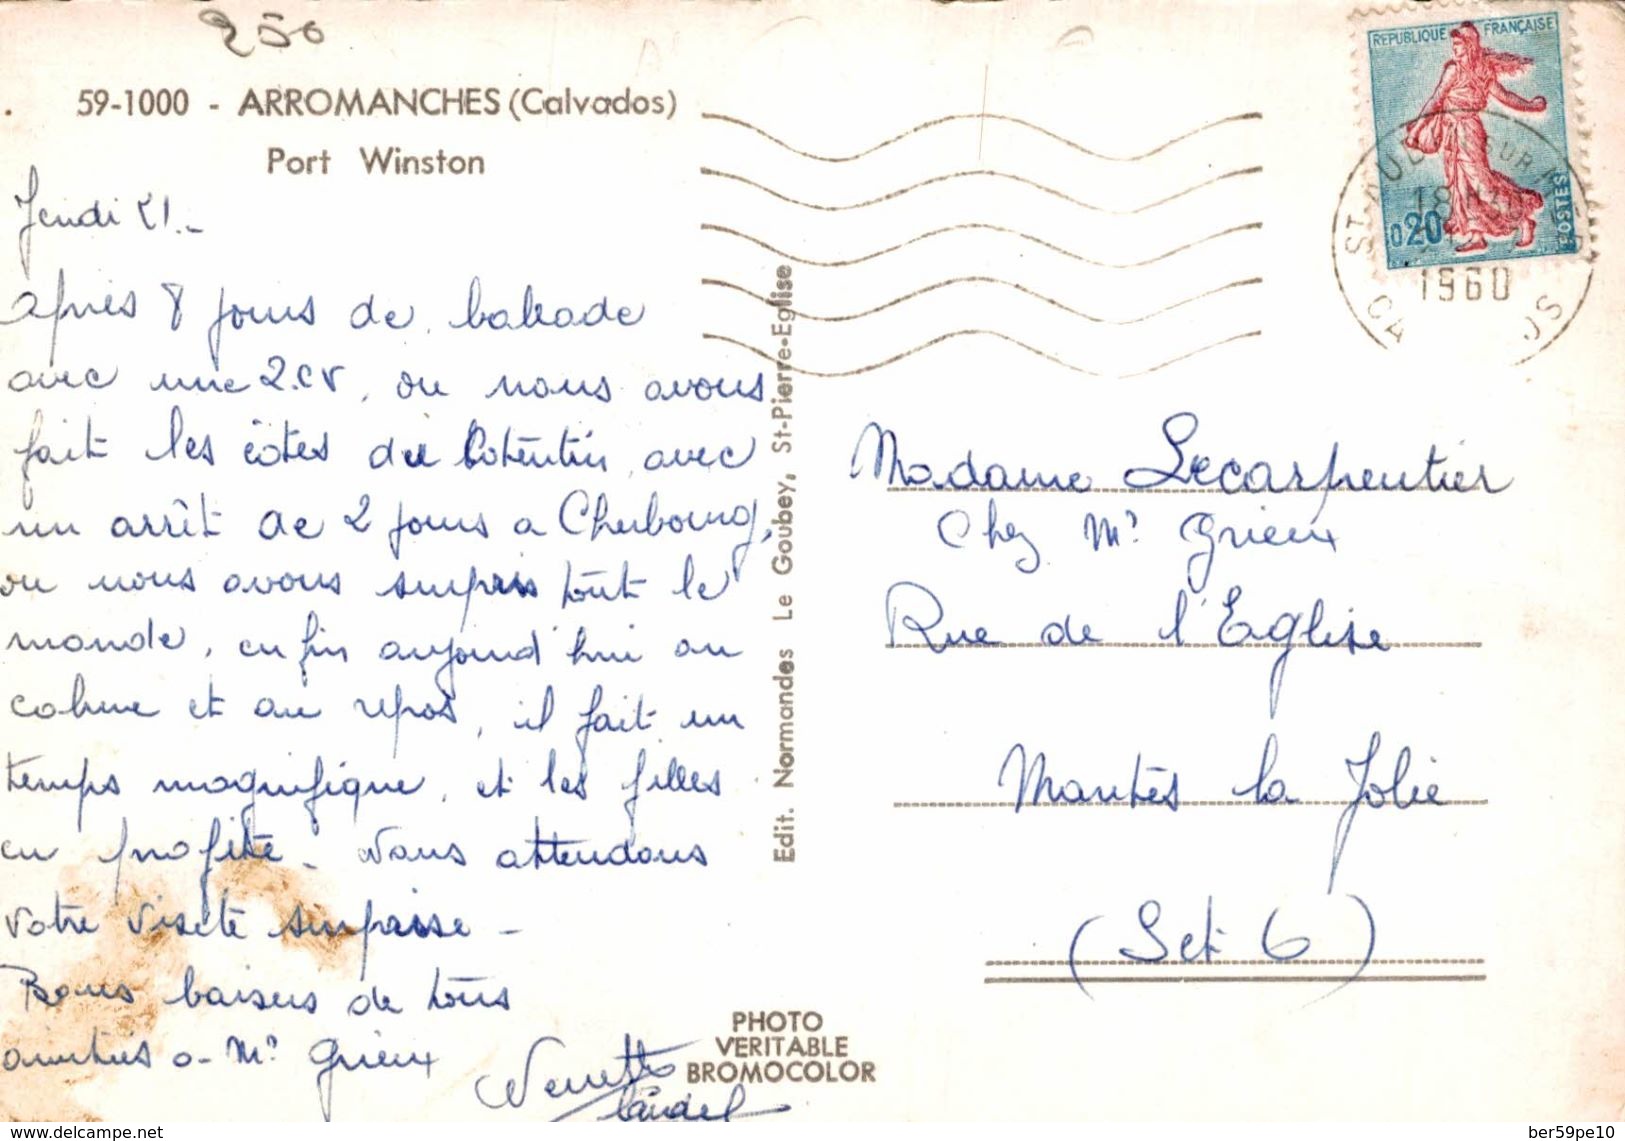 250
59-1000 - ARROMANCHES (Calvados)
Port Winston
REPUBLIQUE FRANÇAISE
0,20
POSTES
18 H30
1960
Jeudi 21.-
après 8 jours de balade
avec une 2.CV, ou nous avons
fait les côtes du Cotentin, avec
un arrêt de 2 jours a Cherbourg,
ou nous avons surpris tout le
monde, enfin aujourd'hui au
calme et au repos, il fait un
temps magnifique, et les filles
en profite - Nous attendons
votre visite surprise -
Bons baisers de tous
amitiés a - Mr Grieux
Edit. Normandes Le Goubey, St-Pierre-Eglise
Madame Lecarpentier
Chez Mr Grieux
Rue de l'Eglise
Mantes la Jolie
(Set 6)
PHOTO
VERITABLE
BROMOCOLOR
https://www.delcampe.net
ber59pe10